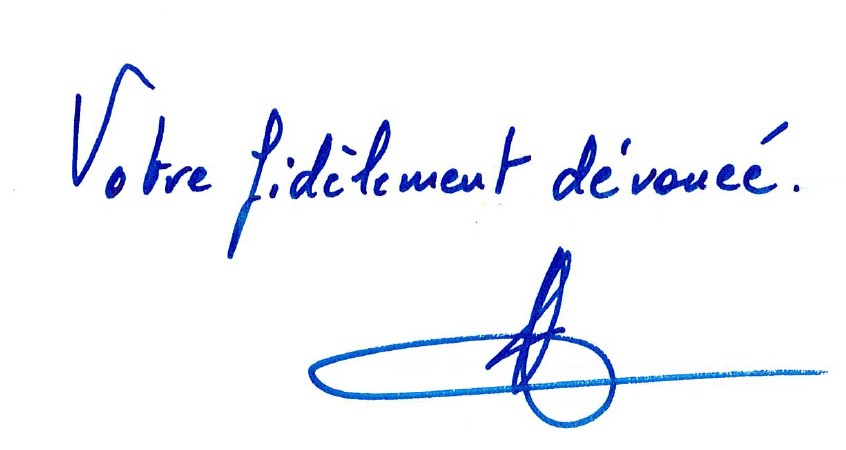 Votre fidèlement dévoueé.